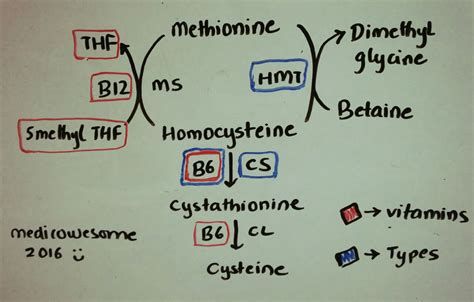 Methionine
THF
Dimethyl
glycine
B12
MS
HMT
Betaine
5methyl THF
Homocysteine
B6
CS
Cystathionine
B6
CL
Cysteine
→ vitamins
→ Types
medicowesome
2016